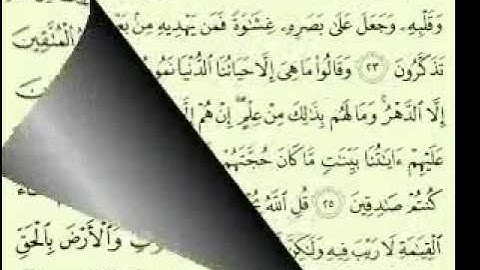 وَقَلْبِهِۦ وَجَعَلَ عَلَىٰ بَصَرِهِۦ غِشَٰوَةً فَمَن يَهْدِيهِ مِنۢ
ٱلْمُتَّقِينَ
تَذَكَّرُونَ ٢٣ وَقَالُوا۟ مَا هِىَ إِلَّا حَيَاتُنَا ٱلدُّنْيَا
إِلَّا ٱلدَّهْرُ وَمَا لَهُم بِذَٰلِكَ مِنْ عِلْمٍ إِنْ هُمْ
عَلَيْهِمْ ءَايَٰتُنَا بَيِّنَٰتٍ مَّا كَانَ حُجَّتَهُمْ
كُنتُمْ صَٰدِقِينَ ٢٥ قُلِ ٱللَّهُ
ٱلْقِيَٰمَةِ لَا رَيْبَ فِيهِ وَلَٰكِنَّ وَٱلْأَرْضَ بِٱلْحَقِّ